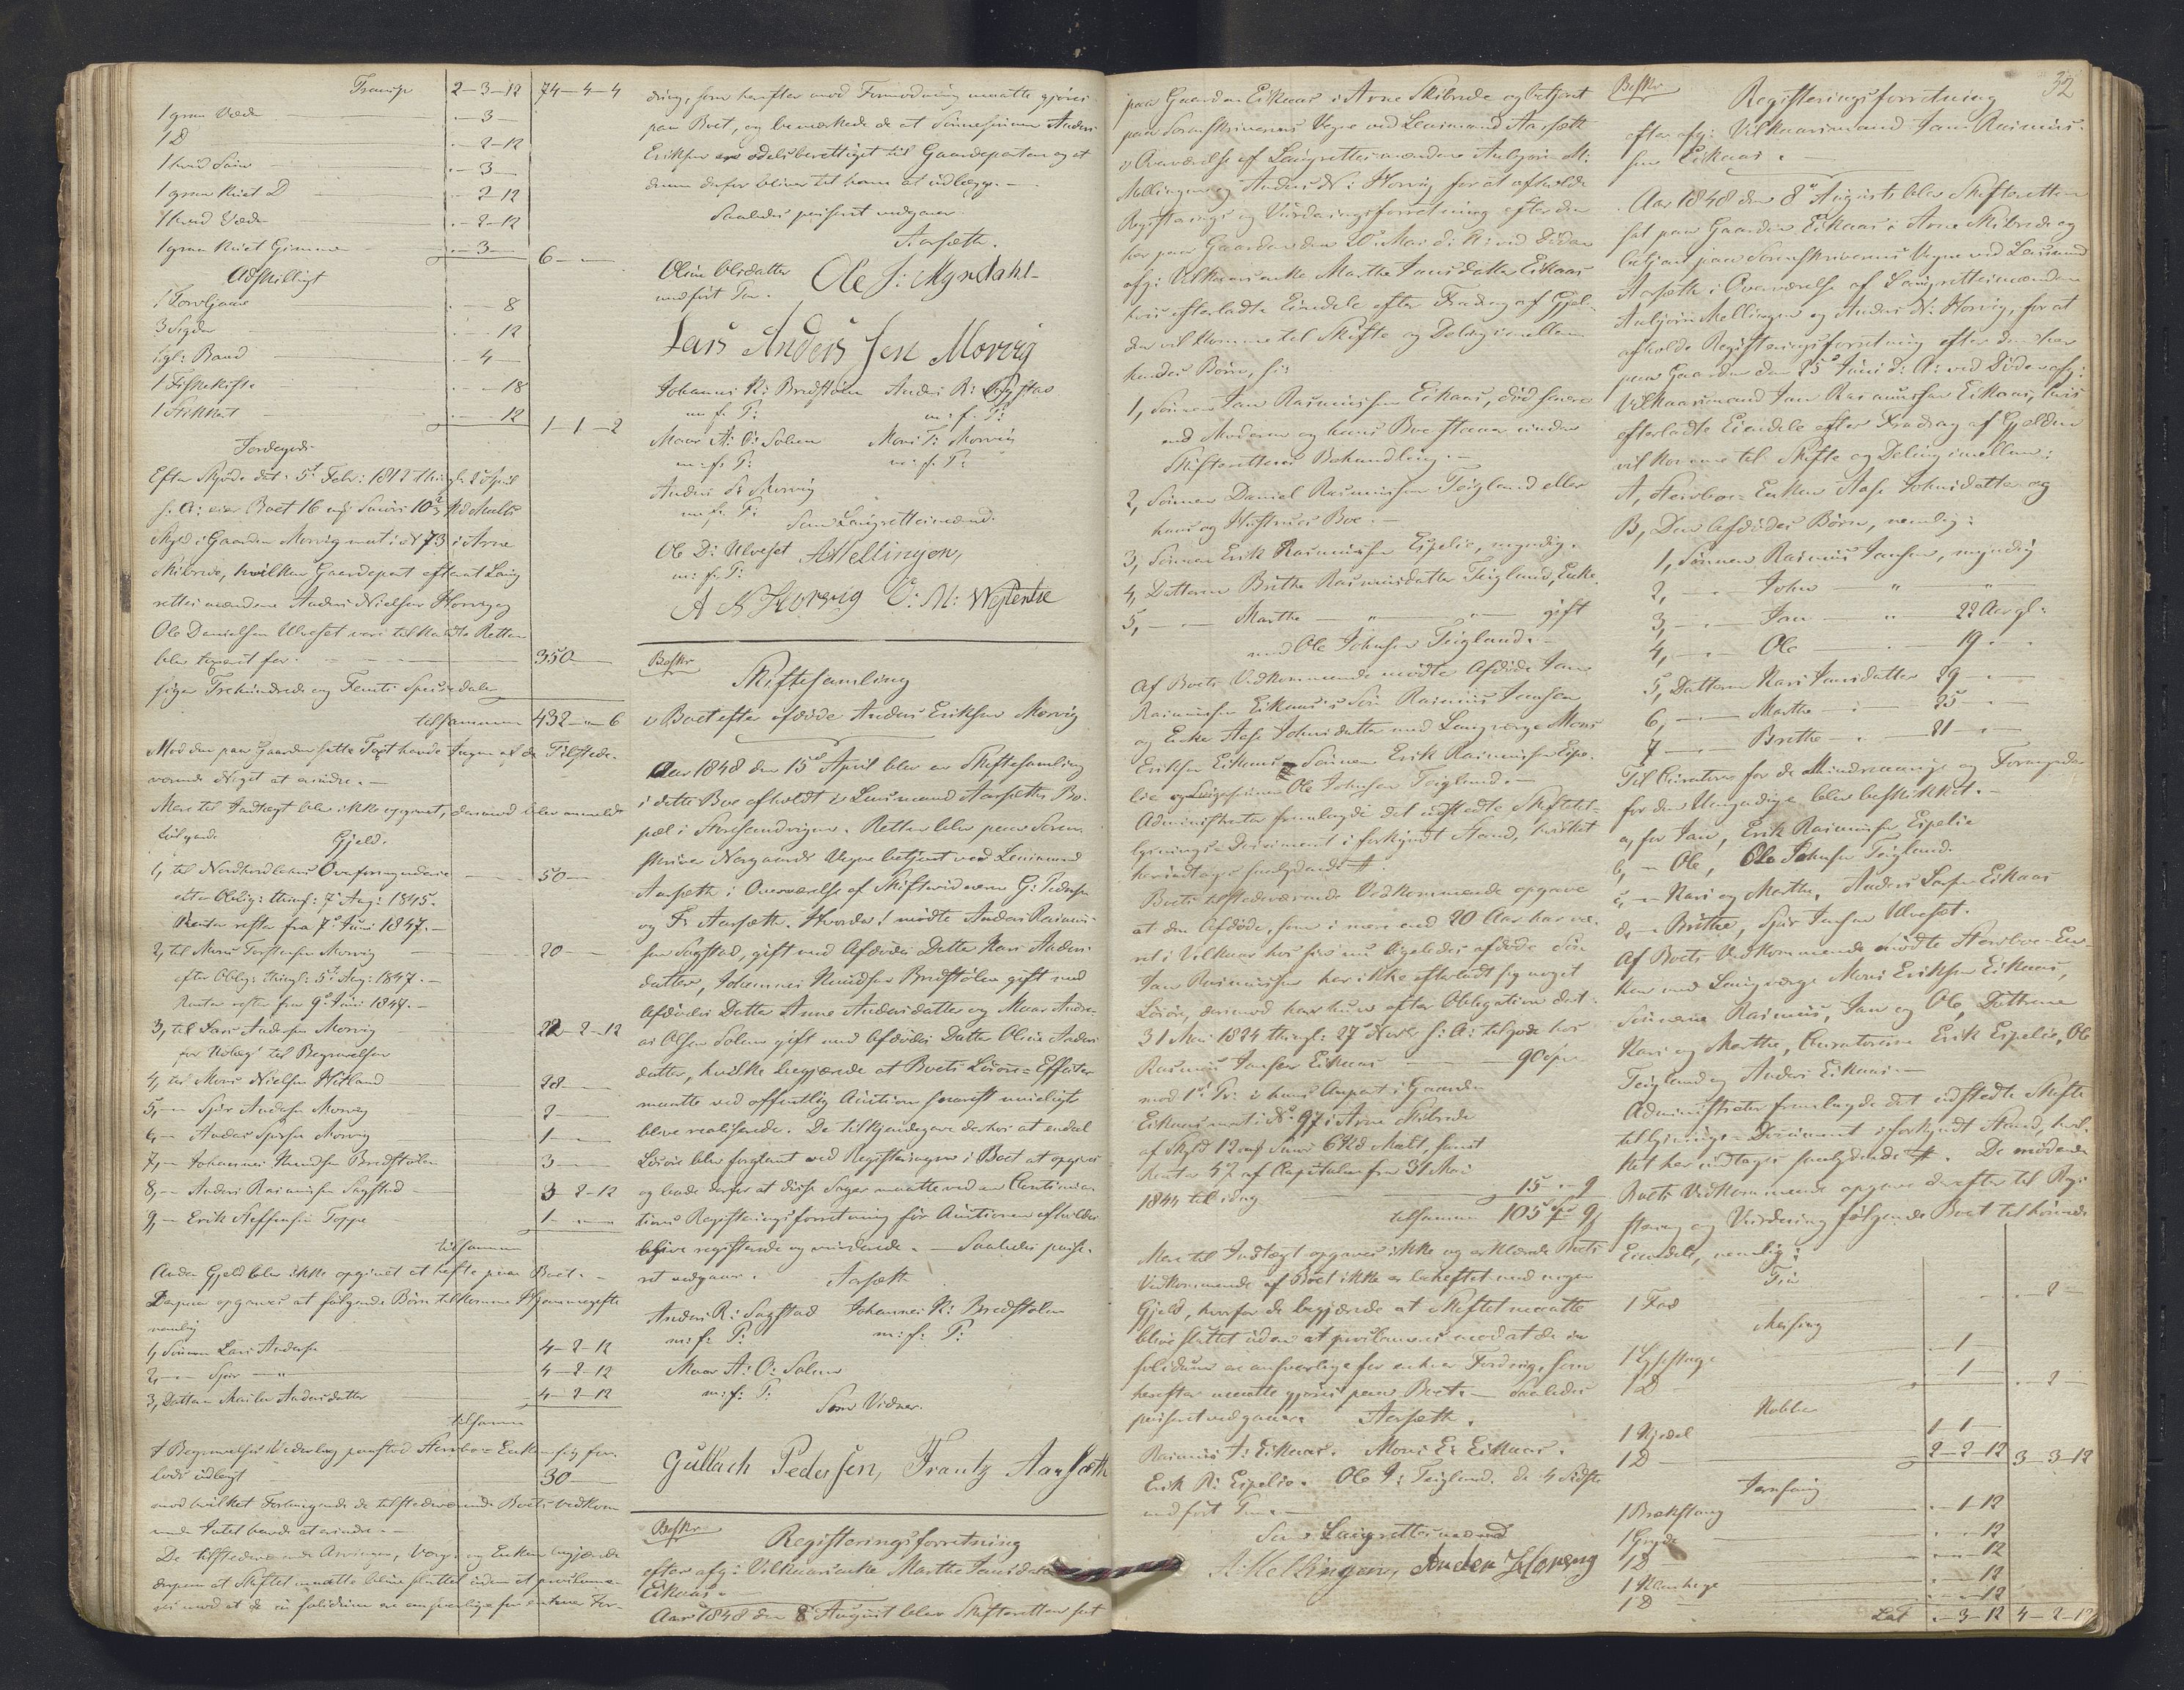 Transp 2-3-12 74-4-4
1 graa Væd .-3-
1 D .-2-12
1 hvid .-3-
1 graa .-2-12
1 hvid Væd .-2-12
1 graa Gimmer .-3- 6-"-
Adskilligt
1 .-"-8
3 Sigder .-"-12
1 gl: Baad .-4-
1 Fiskekiste .-"-18
1 .-"-12 1-1-2
Jordegods
Efter Skjøde dat: 5te Febr: 1812 thingl. 2 April
s. A: eier Boet 16 mk Smør Malts
Skyld i Gaarden Morvig mat: No 73 i Arne
Skibrede, hvilken Gaardepart efterat Laug
rettesmændene Anders Nielsen Horvig og
Ole Danielsen Ulveset vare tilkaldte Retten
blev taxeret for 350-
siger Trehundrede og Femti Speciedaler
tilsammen 432-"-6
Mod den paa Gaarden satte Taxt havde Ingen af de Tilstede-
værende Noget at erindre.-
Mere til Indtægt blev ikke opgivet, derimod blev anmeldt
følgende Gjeld.
1, til Nordhordlehns Overformynderie 50-
efter Oblig: thingl: 7de Aug: 1845.
Renter rester fra 7de Juni 1847.-
2, til Mons Torstensen Morvig 20-
efter Oblig: thingl: 5te Aug: 1847.-
Renter rester fra 9de Juni 1847.-
3, til Lars Andersen Morvig 22-2-12
for Udlæg til Begravelsen
4, til Mons Nielsen Hetland 28-
5, -"- Sjur Andersen Morvig 2-
6, -"- Anders Sjursen Morvig 1-
7, -"- Johannes Knudsen Bredstølen 3-
8, -"- Anders Rasmussen Sagstad 3-2-12
9, -"- Erik Steffensen Toppe 1-"-
tilsammen
Anden Gjeld blev ikke opgivet at hefte paa Boet.-
Derpaa opgaves at følgende Børn tilkomme Hjemmegifte
nemlig
1, Sønnen Lars Andersen 4-2-12
2, -"- Sjur -"- 4-2-12
3, Datteren Andersdatter 4-2-12
tilsammen
I Begravelses Vederlag paastod Stervbo-Enken sig for-
lods udlagt 30-
mod hvilket Forlangende de tilstedeværende Boets Vedkom-
mende Intet havde at erindre.-
De tilstedeværende Arvinger, Værger og Enken begjærede
derpaa at Skiftet maatte blive sluttet uden at proklame-
res mod at de in solidum ere ansvarlige for enhver For-
dring, som herefter mod Formodning maatte gjøres
paa Boet, og bemærkede de at Sønnesønnen Anders
Eriksen er odelsberettiget til Gaardeparten og at
denne derfor bliver til ham at udlægge.-
Saaledes passeret vedgaaer.
Aarsæth.
Oline Olsdatter Ole J: Myrdahl-
med ført Pen.
Lars Anders sen Morvig
Johannes K: Bredstølen Anders R: Sagstad
m. f. P: m: f. P:
Mons A: O: Solem Mons T: Morvig
m: f: P: m: f. P:
Anders S: Morvig
m. f. P:
Som Laugrettesmænd.
Ole D: Ulveset AMellingen,
m: f. P:
A N Horvig
Beskr
Skiftesamling
i Boet efter afdøde Anders Eriksen Morvig
Aar 1848 den 15de April blev en Skiftesamling
i dette Boe afholdt i Lensmand Aarsæths Bo-
pæl i Storesandvigen. Retten blev paa Soren-
skriver Norgaards Vegne betjent ved Lensmand
Aarsæth i Overværelse af Skiftevidnerne G: Pedersen
og Fr Aarsæth. Hvorda! mødte Anders Rasmus-
sen Sagstad, gift med Afdødes Datter Kari Anders-
datter, Johannes Knudsen Bredstølen gift med
Afdødes Datter Anne Andersdatter og Mons Andre-
as Olsen Solem gift med Afdødes Datter Oline Anders-
datter, hvilke begjærede at Boets Løsøre-Effecter
maatte ved offentlig Auction snarest muligst
blive realiserede. De tilkjendegave derhos at endeel
Løsøre blev forglemt ved Registeringen i Boet at opgives
og bade derfor at disse Sager maatte ved en Continua-
tions Registeringsforretning før Auctionen afholdes
blive registerede og vurderede.- Saaledes passe-
ret vedgaaer. Aarsæth
Anders R: Sagstad Johannes K: Bredstølen
m: f: P: m: f: P:
Mons A: O: Solem
m: f: P:
Som Vidner.
Gullach Pedersen, Frantz Aarsæth
Beskr
Registeringsforretning
efter afg: Vilkaarsenke Marthe Jansdatter
Eikaas.
Aar 1848 den 8 August blev Skifteretten sat
paa Gaarden Eikaas i Arne Skibrede og betjent
paa Sorenskriverens Vegne ved Lensmand Aarsæth
i Overværelse af Laugrettesmændene Anbjørn M:
Mellingen og Anders N: Horvig for at afholde
Registerings og Vurderingsforretning efter den
her paa Gaarden den 20de Mai d: A: ved Døden
afg: Vilkaarsenke Marthe Jansdatter Eikaas
hvis efterladte Eiendele efter Fradrag af Gjel-
den vil komme til Skifte og Deling imellem
hendes Børn, s:
1, Sønnen Jan Rasmussen Eikaas, død senere
end Moderen og hans Boe staaer under
Skifterettens Behandling.-
2, Sønnen Daniel Rasmussen Teigland eller
hans og Hustrues Boe.-
3, Sønnen Erik Rasmussen Espelie, myndig.
4, Datteren Brithe Rasmusdatter Teigland, Enke.
5, -"- Marthe -"- gift
med Ole Johnsen Teigland.-
Af Boets Vedkommende mødte Afdøde Jan
Rasmussen Eikaas's Søn Rasmus Jansen
og Enke Aase Johnsdatter med Laugværge Mons
Eriksen Eikaas, Sønnen Erik Rasmussen Espe-
lie og Svigersønnen Ole Johnsen Teigland.-
Administrator fremlagde det udstedte Skiftetil-
lysnings-Document i forkyndt Stand, hvilket
her indtages saalydende #.
Boets tilstedeværende Vedkommende opgave
at den Afdøde, som i mere end 20 Aar har væ-
ret i Vilkaar hos sin nu ligeledes afdøde Søn
Jan Rasmussen har ikke efterladt sig noget
Løsøre, derimod har hun efter Obligation dat.
31 Mai 1824 thingl: 27de s: A: tilgode hos
Rasmus Jansen Eikaas 90 Spd
med 1ste Pr: i hans Anpart i Gaarden
Eikaas mat: No 97 i Arne Skibrede
af Skyld 12 mk Smør Malt, samt
Renter 4% af Capitalen fra 31 Mai
1844 til idag 15-"-9
tilsammen 105 9
Mere til Indtægt opgaves ikke og erklærede Boets
Vedkommende at Boet ikke er beheftet med nogen
Gjeld, hvorfor de begjærede at Skiftet maatte
blive sluttet uden at proklameres mod at de in
solidum ere ansvarlige for enhver Fordring, som
herefter maatte gjøres paa Boet.- Saaledes
passeret vedgaaer. Aarsæth.
Rasmus J: Eikaas. Mons E: Eikaas.
Erik R: Espelie. Ole J: Teigland. de 4 sidste
med ført Pen.-
Som Laugrettesmænd
A: Mellingen, Anders Horvig
32
Beskr
Registeringsforretning
efter afg: Vilkaarsmand Jan Rasmus-
sen Eikaas.
Aar 1848 den 8de August blev Skifteretten
sat paa Gaarden Eikaas i Arne Skibrede og
betjent paa Sorenskriverens Vegne ved Lensmand
Aarsæth i Overværelse af Laugrettesmændene
Anbjørn Mellingen og Anders N: Horvig, for at
afholde Registeringsforretning efter den her
paa Gaarden den 25de Juni d: A: ved Døden afg:
Vilkaarsmand Jan Rasmussen Eikaas, hvis
efterladte Eiendele efter Fradrag af Gjelden
vil komme til Skifte og Deling imellem:
A, Stervboe-Enken Aase Johnsdatter og
B, Den Afdødes Børn, nemlig:
1, Sønnen Rasmus Jansen, myndig
2, -"- John " "
3, -"- Jan " 22 Aar gl:
4, -"- Ole -"- 19 -"-
5, Datteren Kari Jansdatter 29 -"-
6, -"- Marthe -"- 25 -"-
7 -"- Brithe -"- 21 -"-
Til Curatorer for de Mindreaarige og Formynder
for den Umyndige blev beskikket.-
a, for Jan, Erik Rasmussen Espelie
b, -"- Ole, Ole Johnsen Teigland.
c, -"- Kari og Marthe, Anders Larsen Eikaas
d, -"- Brithe, Sjur Jansen Ulveset.
Af Boets Vedkommende mødte Stervboe-En-
ken med Laugværge Mons Eriksen Eikaas,
Sønnerne Rasmus, Jan og Ole, Døttrene
Kari og Marthe, Curatorerne Erik Espelie, Ole
Teigland og Anders Eikaas.-
Administrator fremlagde det udstedte Skifte
tillysnings-Document i forkyndt Stand, hvil-
ket her indtages saalydende #. De mødende
Boets Vedkommende opgave derefter til Regi-
stering og Vurdering følgende Boet tilhørende
Eiendele, nemlig:
Tin
1 Fad .-2-
Messing
1 Lysestage .-1-
1 D .-1- .-2-
Kobber
1 Kjedel 1-1-
1 D 2-2-12 3-3-12
Jernfang
1 Brækstang .-1-12
1 Gryde .-"-12
1 D .-"-12
1 .-"-12
1 D .-"-12
Lat .-3-12 4-2-12